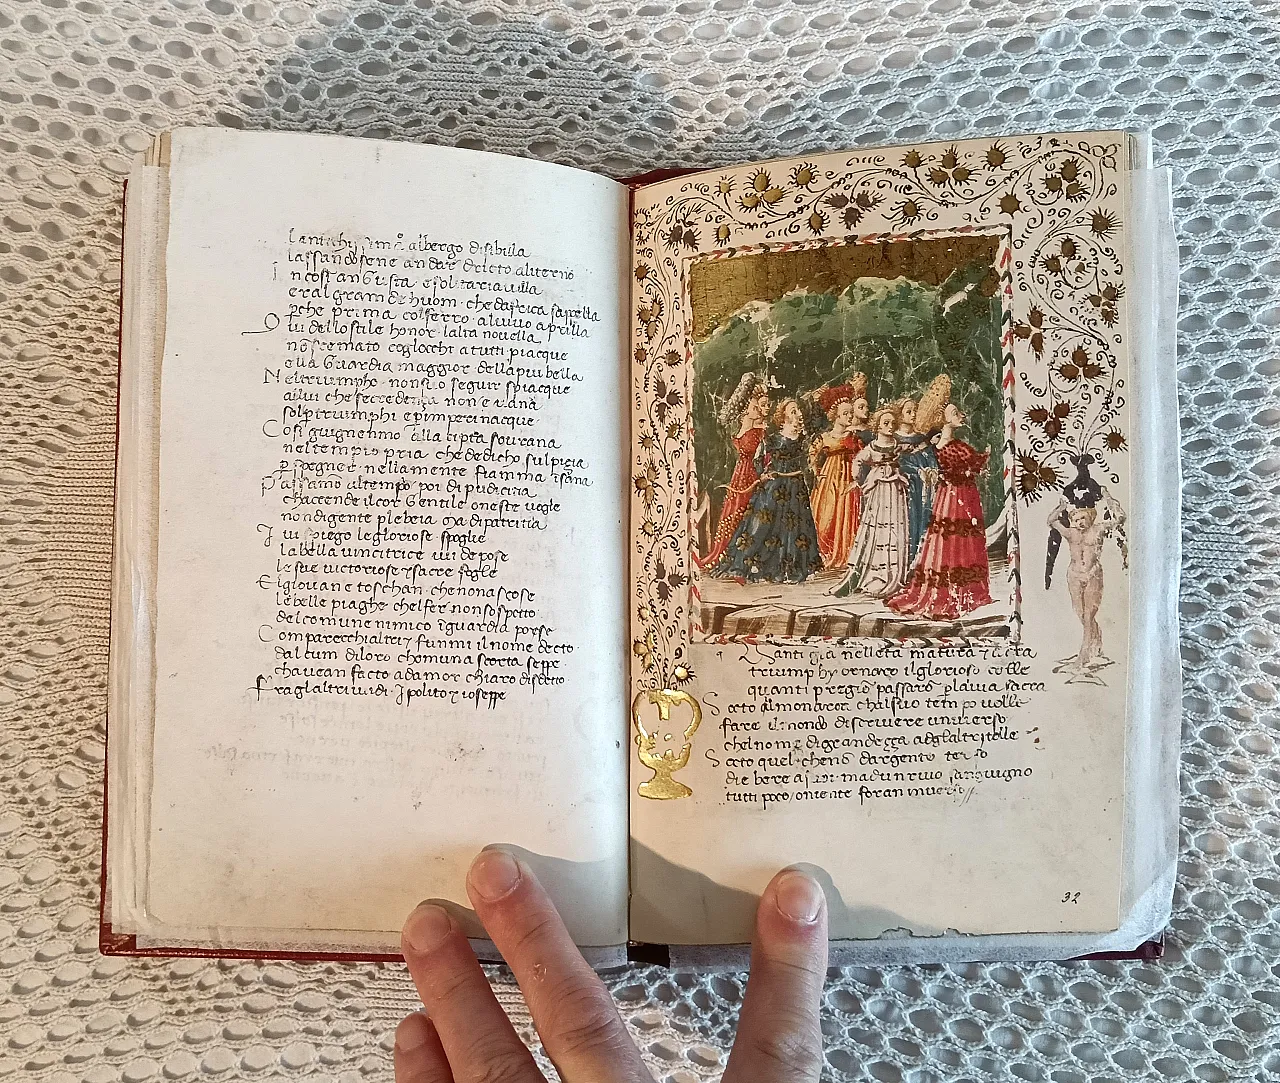 lantichissimo albergo di sibilla
lassandosene andar dricto aliterno
In cosi angusta e solitaria villa
era l gram de huom che dafrica sappella
pche prima col ferro al vivo aprilla
Qui dellostile honor lalta novella
nõ scemato cogliocchi a tutti piacque
e la guardia maggior della piu bella
Nel triumpho non suo seguir spiacque
a lui che se credenza non e vana
sol p triumphi e p imperi nacque
Cosi giugnemmo alla cipta sovrana
nel tempio pria che dedicho sulpicia
p spegner nella mente fiamma insana
Passamo al tempo poi di pudicitia
chaccende il cor gentile oneste vogle
non di gente plebeia ma di patritia
Ivi spiego le gloriose spoglie
la bella vincitrice ivi depose
le sue victoriose & sacre fogle
El giovane toschan che non ascose
le belle piaghe che l fer non sospetto
del comune nimico ĩ guardia pose
Com parecchi altri & funmi il nome decto
dal cum di loro chome una scorta seppe
chavean facto ad amor chiaro disdecto
Fra gli altri vidi Ipolito & ioseppe
Quanti gia nelleta matura & acra
triumphi ornaro il glorioso colle
quanti pregion passaro p la via sacra
Socto il monarcha chal suo tempo volle
fare il mondo discrivere universo
che l nome di grandezza ad gli altri tolle
Socto quel che nõ dargento terso
die bere a suoi ma dun rivo sanguigno
tutti poco o niente foran inverso
32